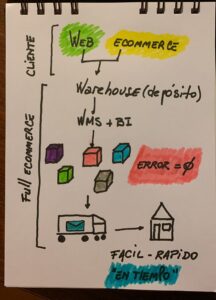 CLIENTE
WEB ECOMMERCE
Warehouse (depósito)
WMS + BI
Full ECOMMERCE
ERROR = Ø
FACIL - RAPIDO
"EN TIEMPO"